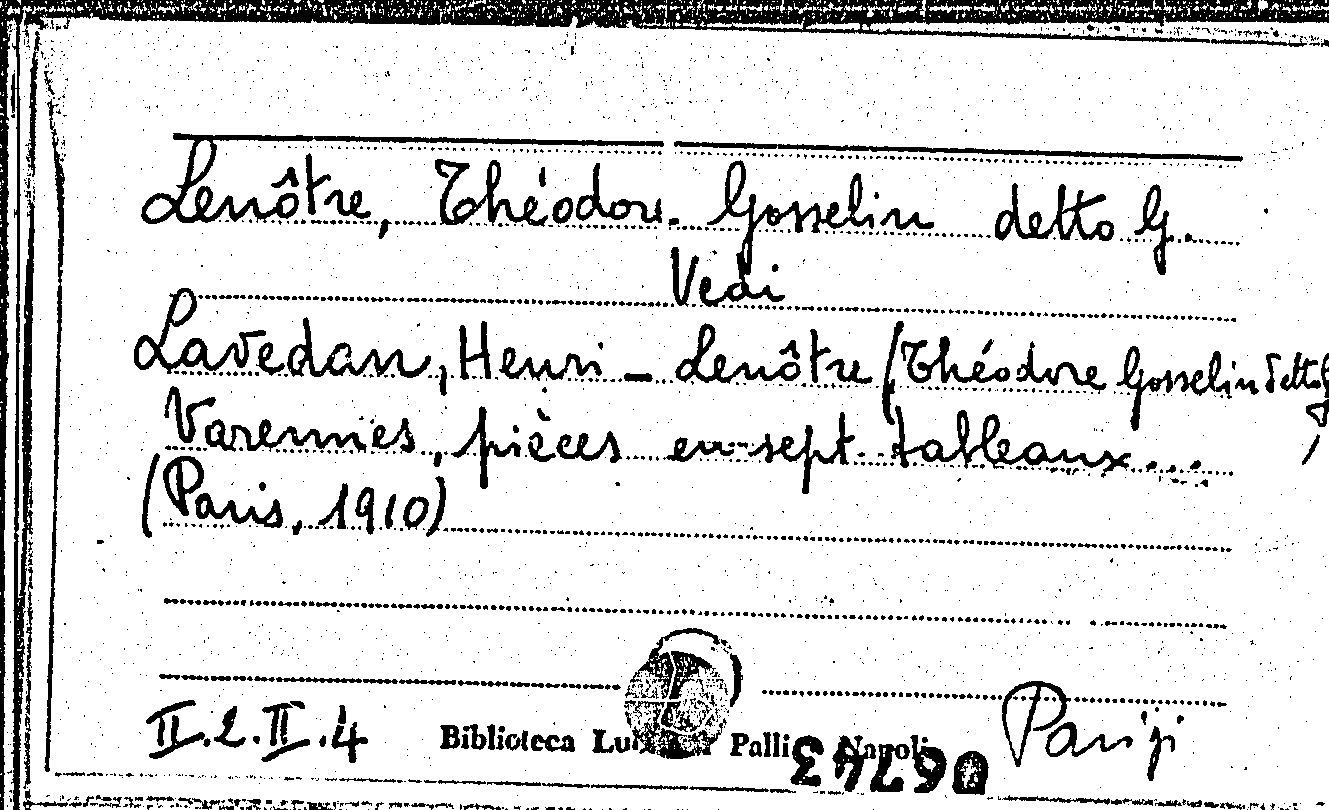 Lenôtre, Théodore Gosselin detto G.
Vedi
Lavedan, Henri - Lenôtre (Théodore Gosselin detto G
Varennes, pièces en sept tableaux...
(Paris, 1910)
II.2.II.4 Biblioteca Palli Napoli Parigi